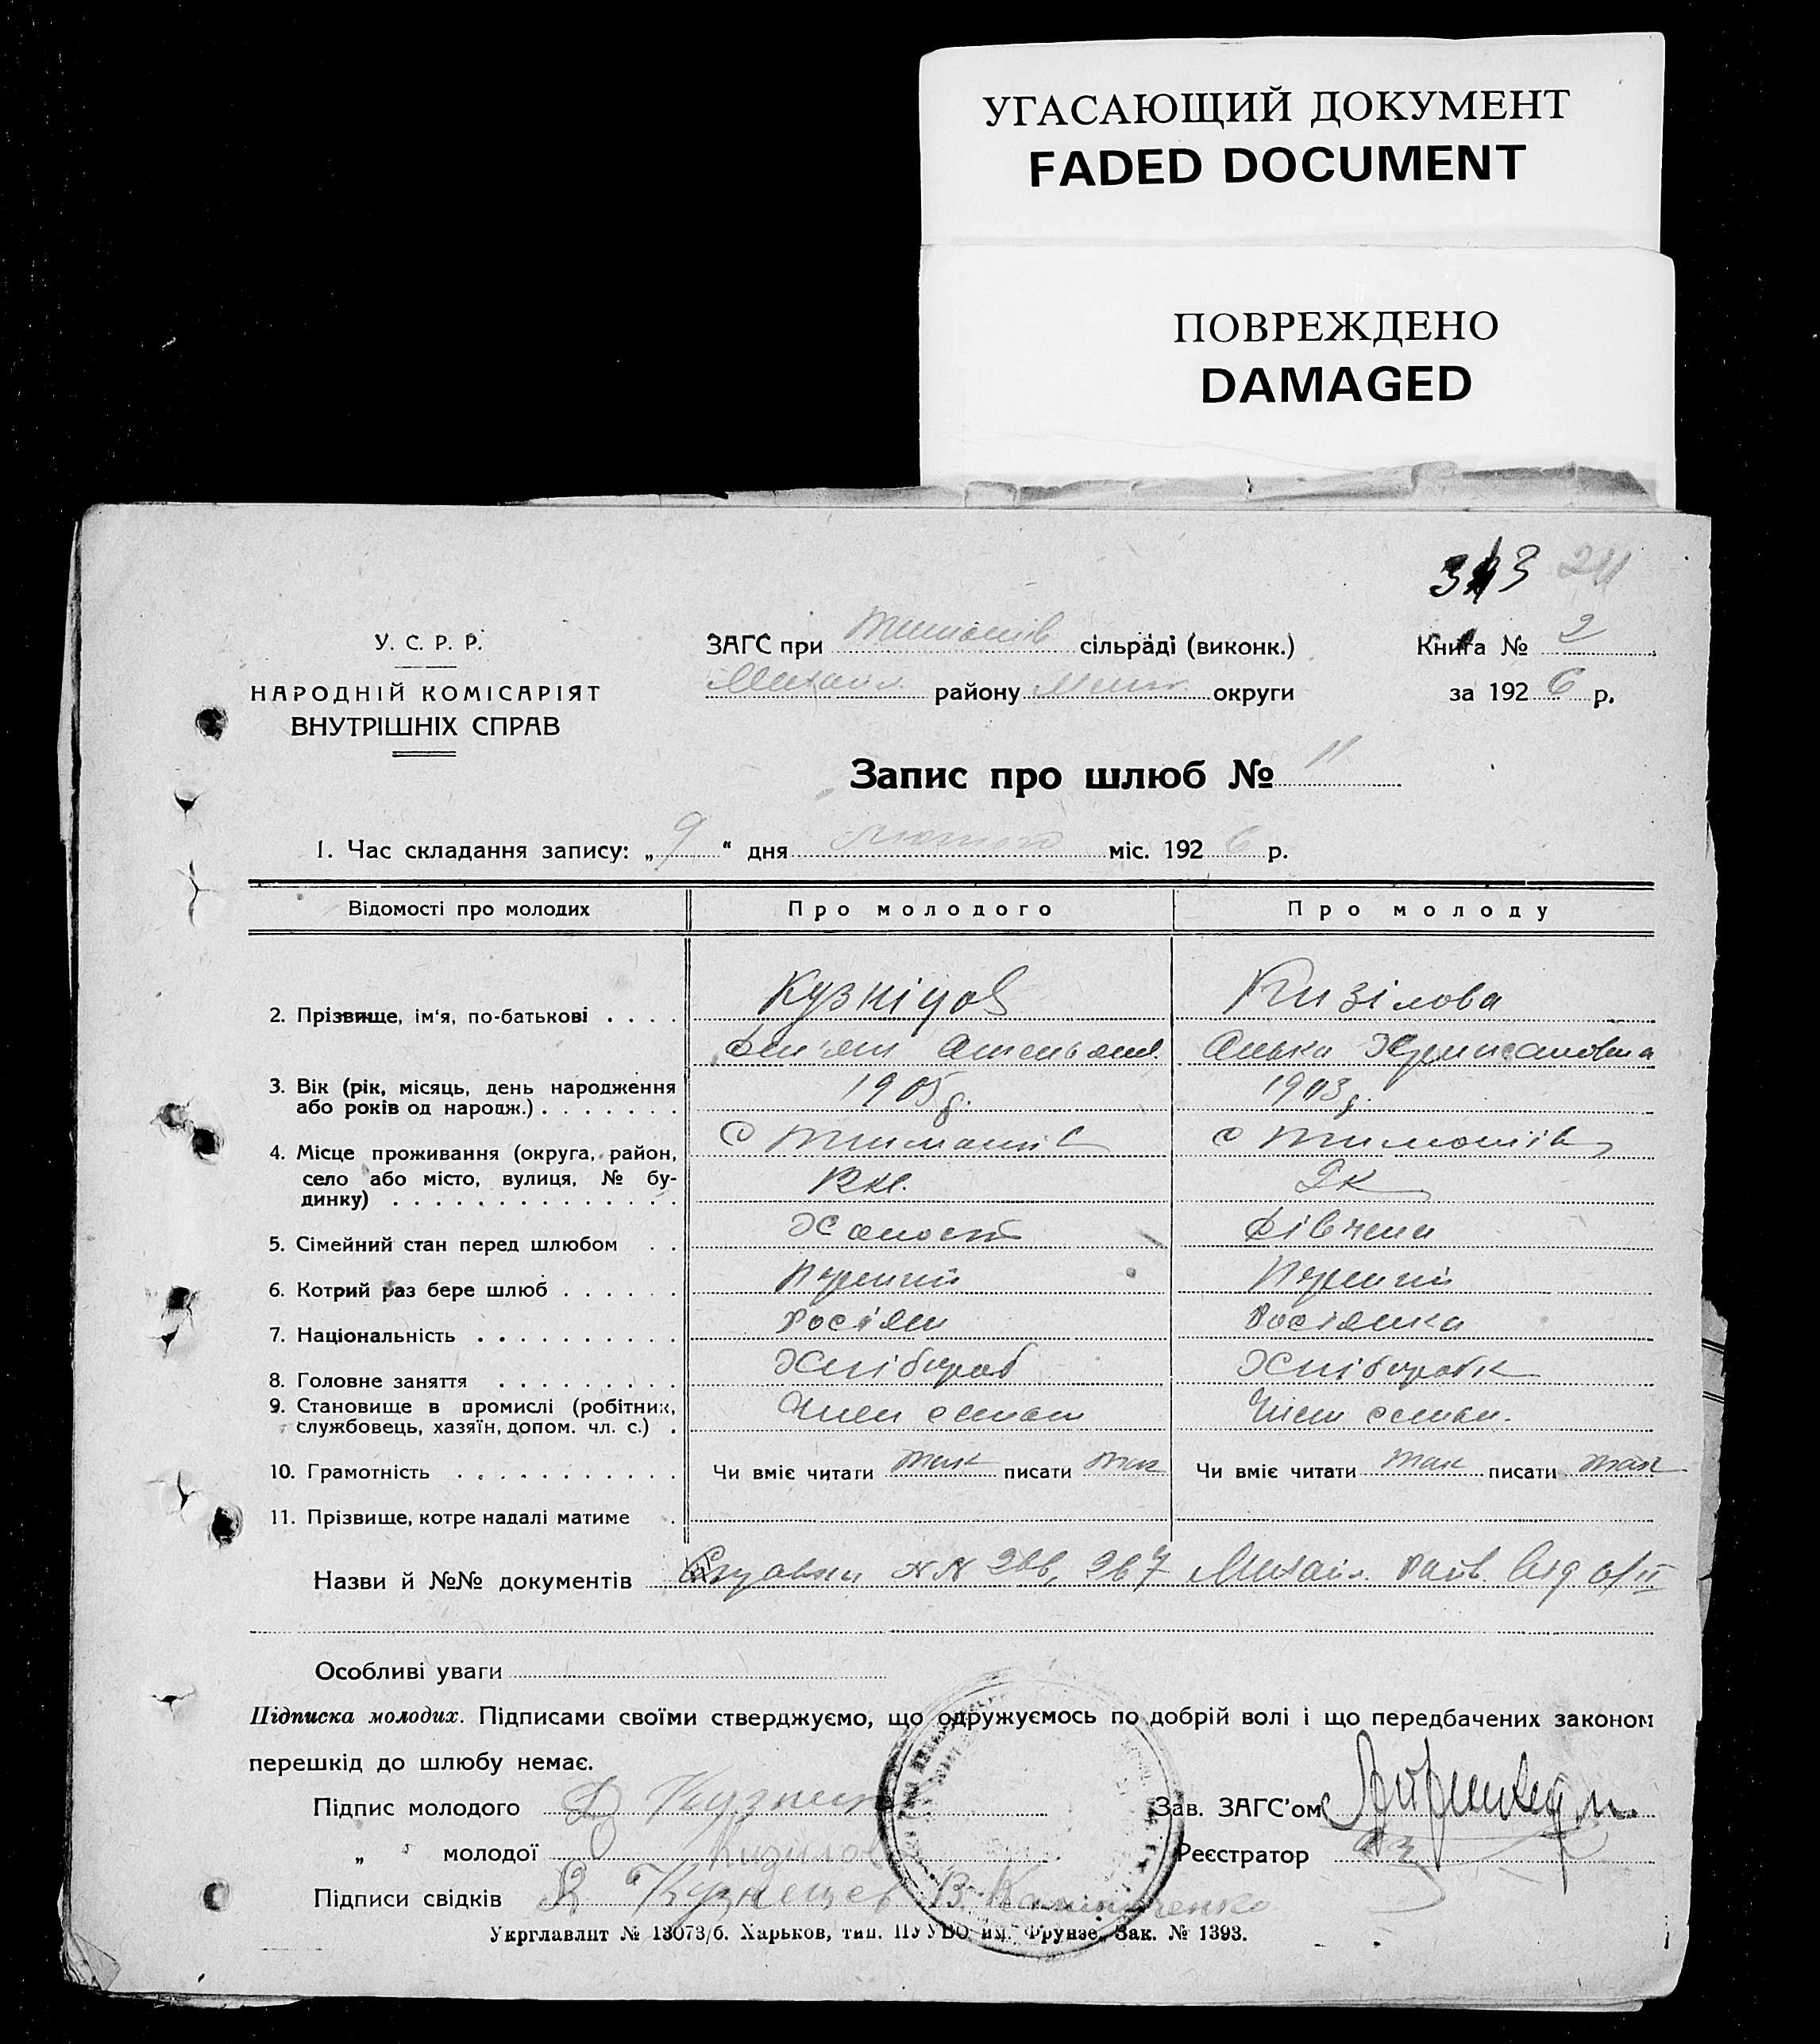 УГАСАЮЩИЙ ДОКУМЕНТ
FADED DOCUMENT
ПОВРЕЖДЕНО
DAMAGED
24
У. С. Р. Р.
НАРОДНІЙ КОМІСАРІЯТ
ВНУТРІШНІХ СПРАВ
ЗАГС при сільраді (виконк.)
Михайл. району Меліт. округи
Книга № 2
за 1926 р.
Запис про шлюб № 11
1. Час складання запису: „ 9 “ дня лютого міс. 1926 р.
Відомості про молодих Про молодого Про молоду
2. Прізвище, ім'я, по-батькові . . . . Кузніцов Кизілова
3. Вік (рік, місяць, день народження
або років од народж.) . . . . . . . 1905 р. 1903 р.
4. Місце проживання (округа, район,
село або місто, вулиця, № бу-
динку) . . . . . . . . . . . . . .
5. Сімейний стан перед шлюбом . . Холост Дівчина
6. Котрий раз бере шлюб . . . . . . Перший Перший
7. Національність . . . . . . . . . . Росіян Росіянка
8. Головне заняття . . . . . . . . . Хлібороб Хлібороб
9. Становище в промислі (робітник,
службовець, хазяїн, допом. чл. с.) . Член Член
10. Грамотність . . . . . . . . . . . Чи вміє читати так писати так Чи вміє читати так писати так
11. Прізвище, котре надалі матиме .
Назви й №№ документів Справки №№ 266, 267 Михайл. від 6/II
Особливі уваги
Підписка молодих. Підписами своїми стверджуємо, що одружуємось по добрій волі і що передбачених законом
перешкід до шлюбу немає.
Підпис молодого Д Кузниц Зав. ЗАГС'ом
„ молодої Кизілов Реєстратор
Підписи свідків Кузнецев В.
Укрглавліт № 13073/6. Харьков, тип. ПУУВО им. Фрунзе. Зак. № 1393.